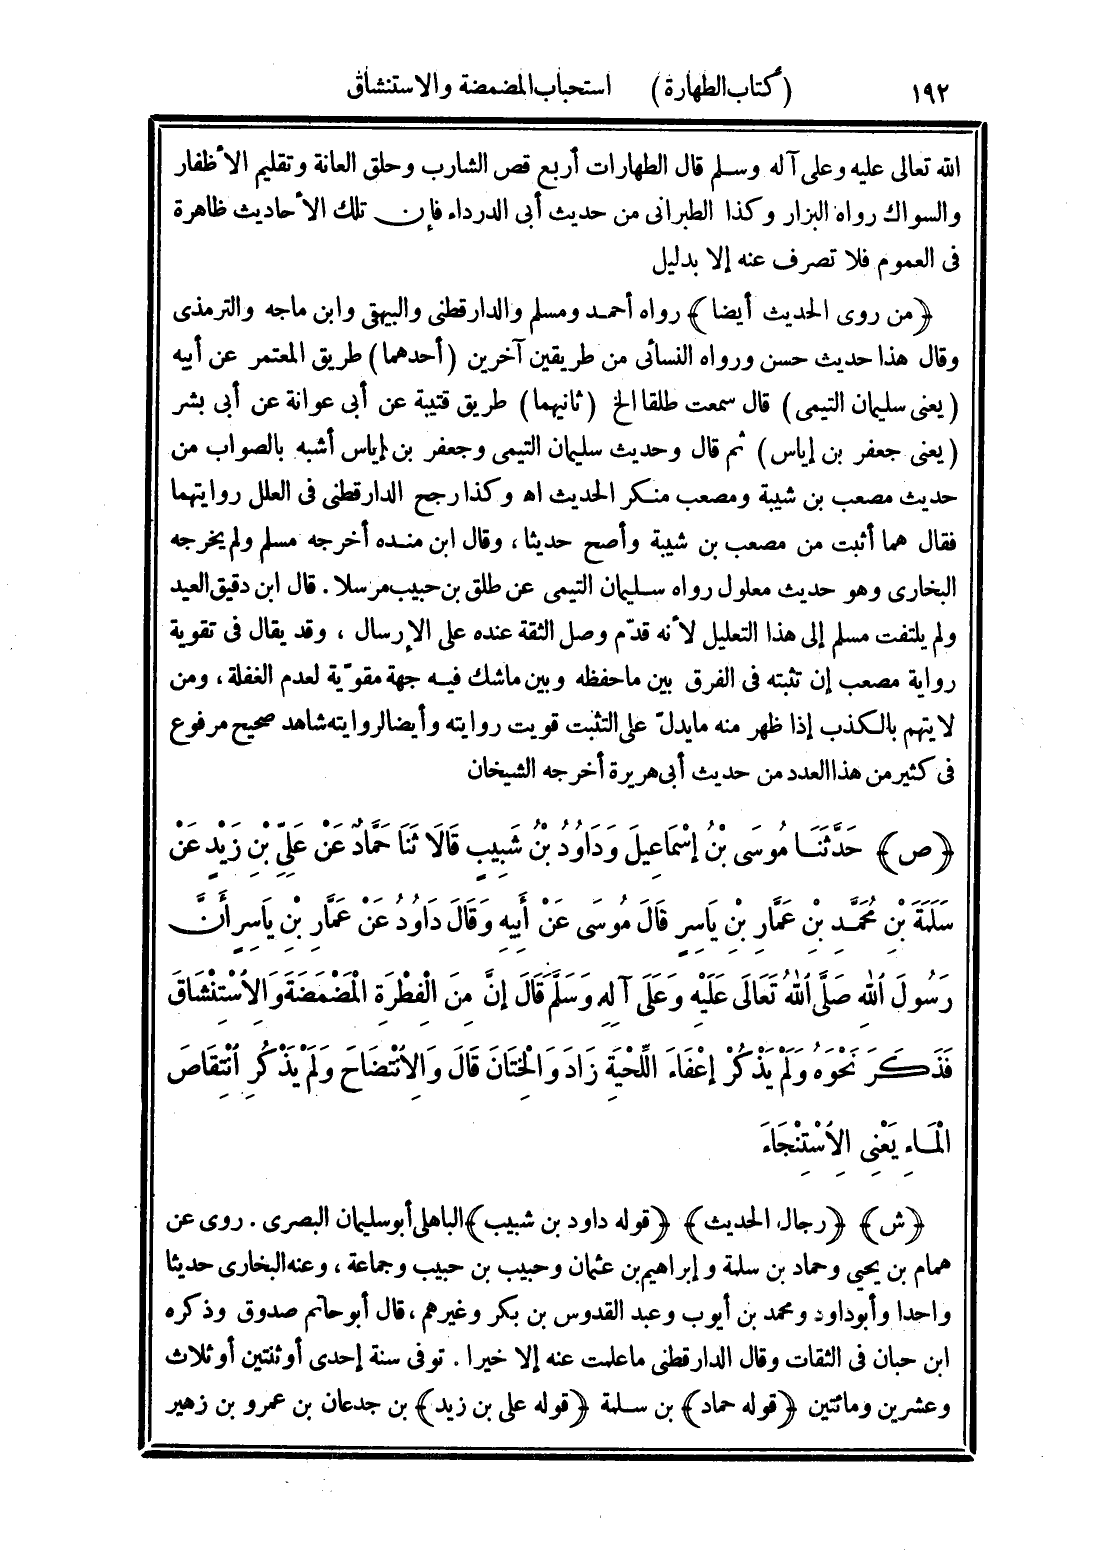 ١٩٢ (كتاب الطهارة) استحباب المضمضة والاستنشاق
الله تعالى عليه وعلى آله وسلم قال الطهارات أربع قص الشارب وحلق العانة وتقليم الأظفار
والسواك رواه البزار وكذا الطبرانى من حديث أبى الدرداء فإن تلك الأحاديث ظاهرة
فى العموم فلا تصرف عنه إلا بدليل
﴿من روى الحديث أيضا﴾ رواه أحمد ومسلم والدارقطنى والبيهقى وابن ماجه والترمذى
وقال هذا حديث حسن ورواه النسائى من طريقين آخرين (أحدهما) طريق المعتمر عن أبيه
(يعنى سليمان التيمى) قال سمعت طلقا الخ (ثانيهما) طريق قتيبة عن أبى عوانة عن أبى بشر
(يعنى جعفر بن إياس) ثم قال وحديث سليمان التيمى وجعفر بن إياس أشبه بالصواب من
حديث مصعب بن شيبة ومصعب منكر الحديث اه وكذا رجح الدارقطنى فى العلل روايتهما
فقال هما أثبت من مصعب بن شيبة وأصح حديثا، وقال ابن منده أخرجه مسلم ولم يخرجه
البخارى وهو حديث معلول رواه سليمان التيمى عن طلق بن حبيب مرسلا. قال ابن دقيق العيد
ولم يلتفت مسلم إلى هذا التعليل لأنه قدّم وصل الثقة عنده على الإرسال، وقد يقال فى تقوية
رواية مصعب إن تثبته فى الفرق بين ماحفظه وبين ماشك فيه جهة مقوّية لعدم الغفلة، ومن
لايتهم بالكذب إذا ظهر منه مايدلّ على التثبت قويت روايته وأيضا لروايته شاهد صحيح مرفوع
فى كثير من هذا العدد من حديث أبى هريرة أخرجه الشيخان
﴿ص﴾ حَدَّثَنَا مُوسَى بْنُ إِسْمَاعِيلَ وَدَاوُدُ بْنُ شَبِيبٍ قَالَا ثَنَا حَمَّادٌ عَنْ عَلِيِّ بْنِ زَيْدٍ عَنْ
سَلَمَةَ بْنِ مُحَمَّدِ بْنِ عَمَّارِ بْنِ يَاسِرٍ قَالَ مُوسَى عَنْ أَبِيهِ وَقَالَ دَاوُدُ عَنْ عَمَّارِ بْنِ يَاسِرٍ أَنَّ
رَسُولَ اللهِ صَلَّى اللهُ تَعَالَى عَلَيْهِ وَعَلَى آلِهِ وَسَلَّمَ قَالَ إِنَّ مِنَ الْفِطْرَةِ الْمَضْمَضَةَ وَالِاسْتِنْشَاقَ
فَذَكَرَ نَحْوَهُ وَلَمْ يَذْكُرْ إِعْفَاءَ اللِّحْيَةِ زَادَ وَالْخِتَانَ قَالَ وَالِانْتِضَاحَ وَلَمْ يَذْكُرِ انْتِقَاصَ
الْمَاءِ يَعْنِى الِاسْتِنْجَاءَ
﴿ش﴾ ﴿رجال الحديث﴾ ﴿قوله داود بن شبيب﴾ الباهلى أبوسليمان البصرى. روى عن
همام بن يحيى وحماد بن سلمة وإبراهيم بن عثمان وحبيب بن حبيب وجماعة، وعنه البخارى حديثا
واحدا وأبوداود ومحمد بن أيوب وعبد القدوس بن بكر وغيرهم، قال أبوحاتم صدوق وذكره
ابن حبان فى الثقات وقال الدارقطنى ماعلمت عنه إلا خيرا. توفى سنة إحدى أوثنتين أوثلاث
وعشرين ومائتين ﴿قوله حماد﴾ بن سلمة ﴿قوله على بن زيد﴾ بن جدعان بن عمرو بن زهير